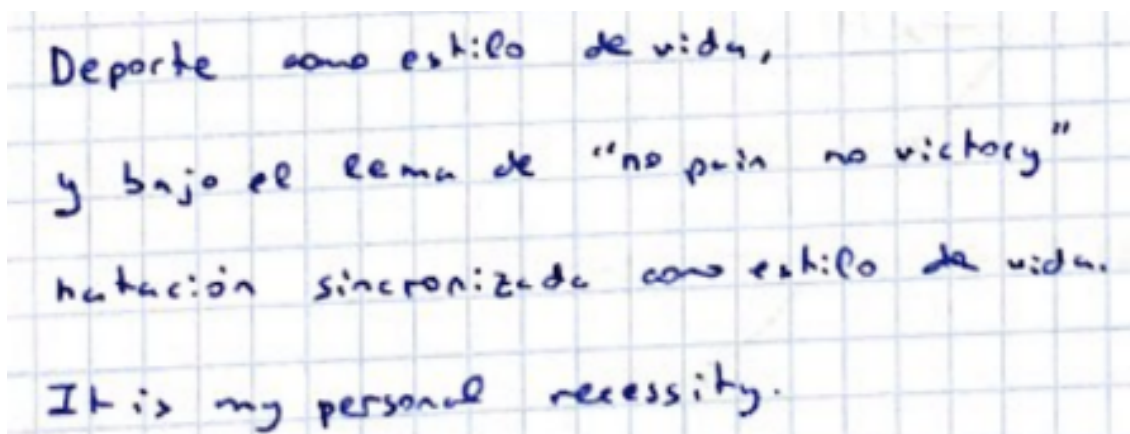 Deporte como estilo de vida,
y bajo el lema de "no pain no victory"
natación sincronizada como estilo de vida.
It is my personal necessity.